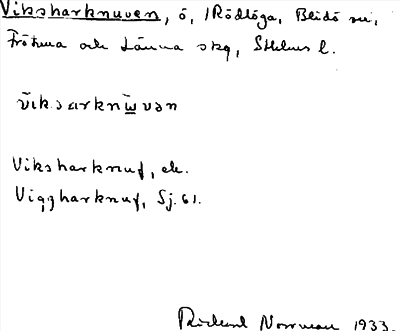 Viksharknuven, ö, /Rödlöga, Blidö sn,
Frötuna och Länna skg, Sthlms l.
viksarknuvən
Viksharknuf, ek.
Viggharknuf, Sj. 61.
Rickard Norrman 1933.